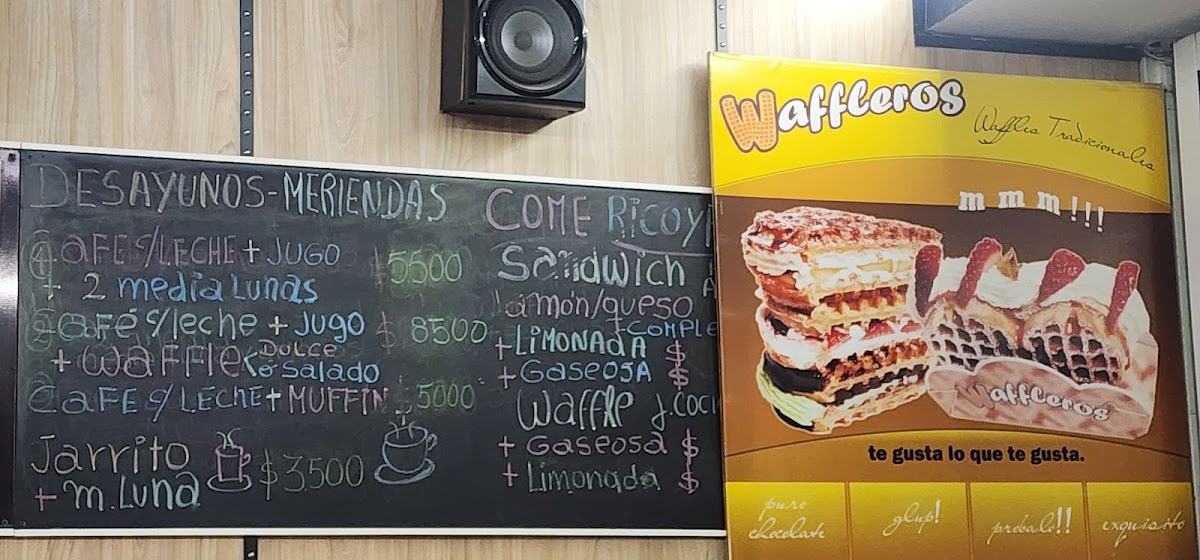 DESAYUNOS-MERIENDAS
CAFE C/LECHE + JUGO
+ 2 media Lunas
$5500
Café c/leche + Jugo
+ WAFFLE DULCE ó Salado
$ 8500
CAFE C/LECHE + MUFFIN $5000
Jarrito
+ m. Luna
$3500
COME RICO Y
Sandwich
Jamón/queso
COMPLE
+ LIMONADA $
+ GASEOSA $
Waffle J. COCI
+ Gaseosa $
+ Limonada $
Waffleros
Waffles Tradicionales
m m m!!!
Waffleros
te gusta lo que te gusta.
puro chocolate
glup!
probalo!!
exquisito